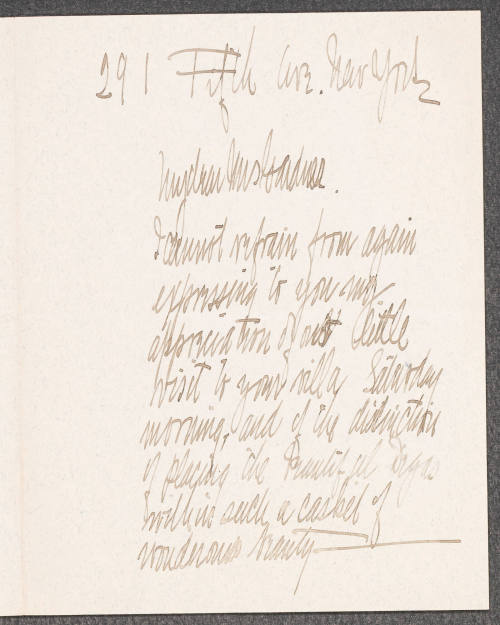 291 Fifth Ave. New York
My dear Mrs Gardner.
I cannot refrain from again
expressing to you my
appreciation of our little
visit to your villa Saturday
morning, and of the distinction
of playing the beautiful
within such a casket of
wonderous beauty